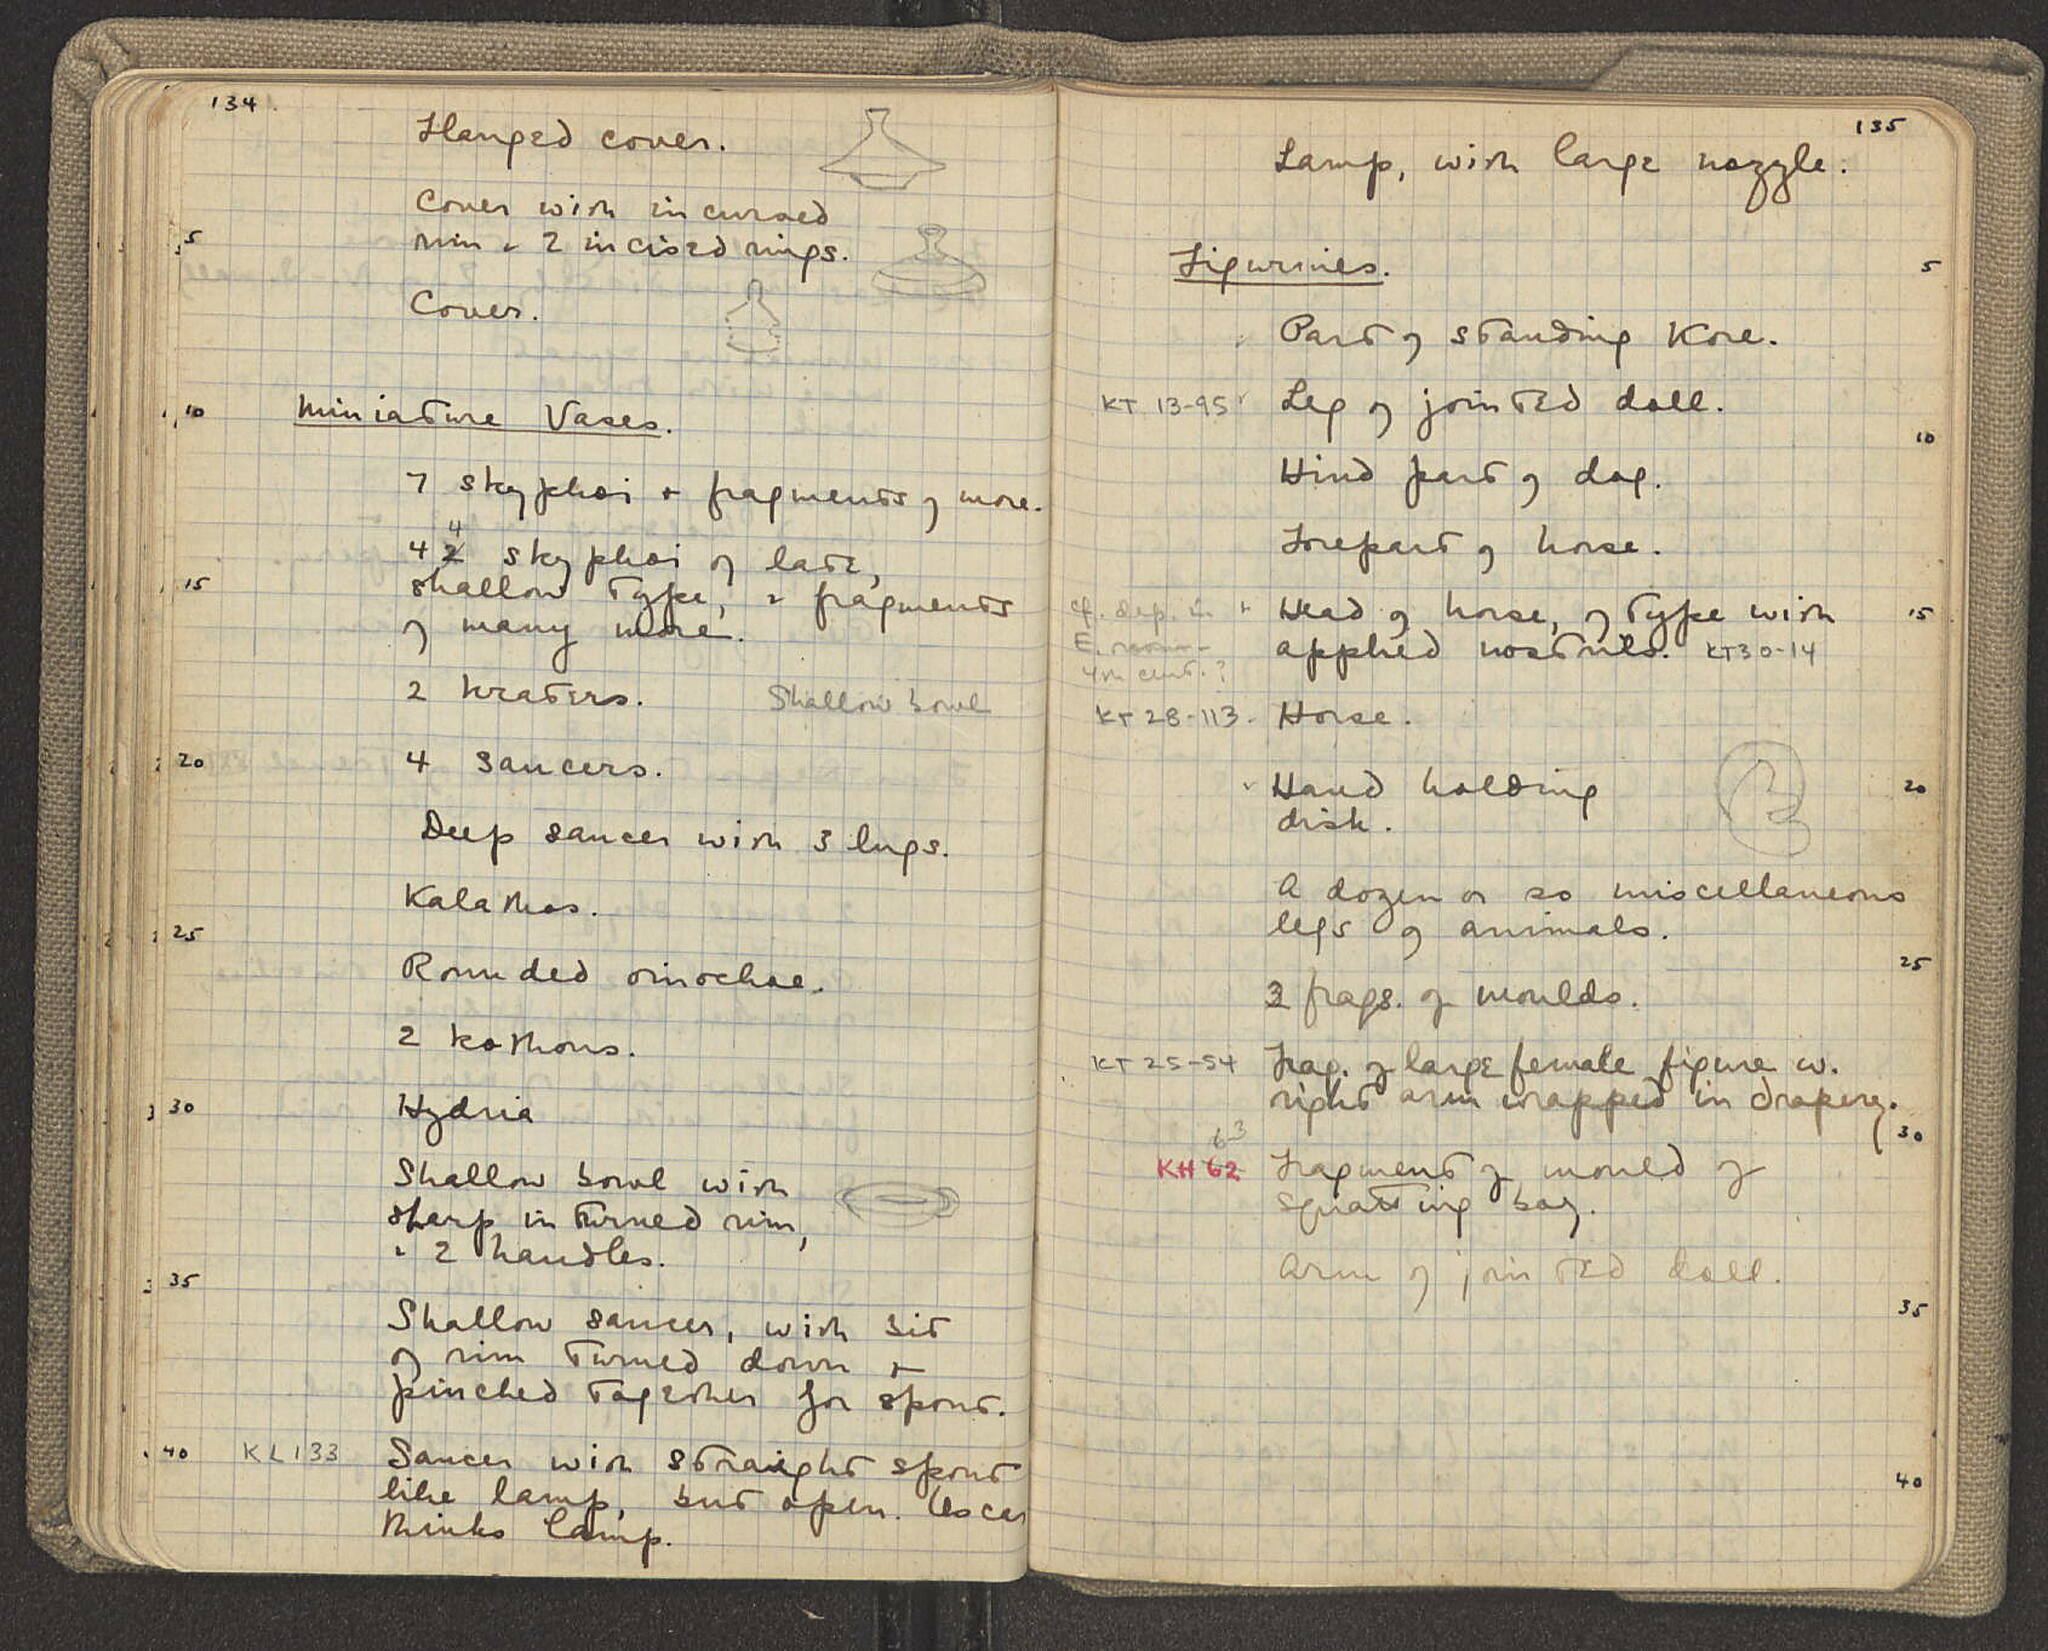 134
Flanged cover.
Cover with incurved
5
rim + 2 incised rings.
Cover.
10
Miniature Vases.
7 skyphoi + fragments of more.
4
42 skyphoi of late,
15
shallow type, + fragments
of many more.
2 kraters. Shallow bowl
20
4 saucers.
Deep saucer with 3 lugs.
Kalathos.
25
Rounded oinochoe.
2 kothons.
30
Hydria
Shallow bowl with
sharp inturned rim,
+ 2 handles.
35
Shallow saucer, with bit
of rim turned down +
pinched together for spout.
40 KL133 Saucer with straight spout
like lamp, but open. Oscar
thinks lamp.
135
Lamp, with large nozzle.
Figurines.
5
Part of standing Kore.
KT 13-95 Leg of jointed doll.
10
Hind part of dog.
Forepart of horse.
cf. dep. in + Head of horse, of type with
15
E. room- applied nostrils. KT30-14
4th cent.?
KT 28-113. Horse.
Hand holding
20
disk.
A dozen or so miscellaneous
legs of animals.
25
3 frags. of moulds.
KT 25-54 Frag. of large female figure w.
right arm wrapped in drapery.
30
6-3
KH 62 Fragment of mould of
squatting boy.
Arm of jointed doll.
35
40